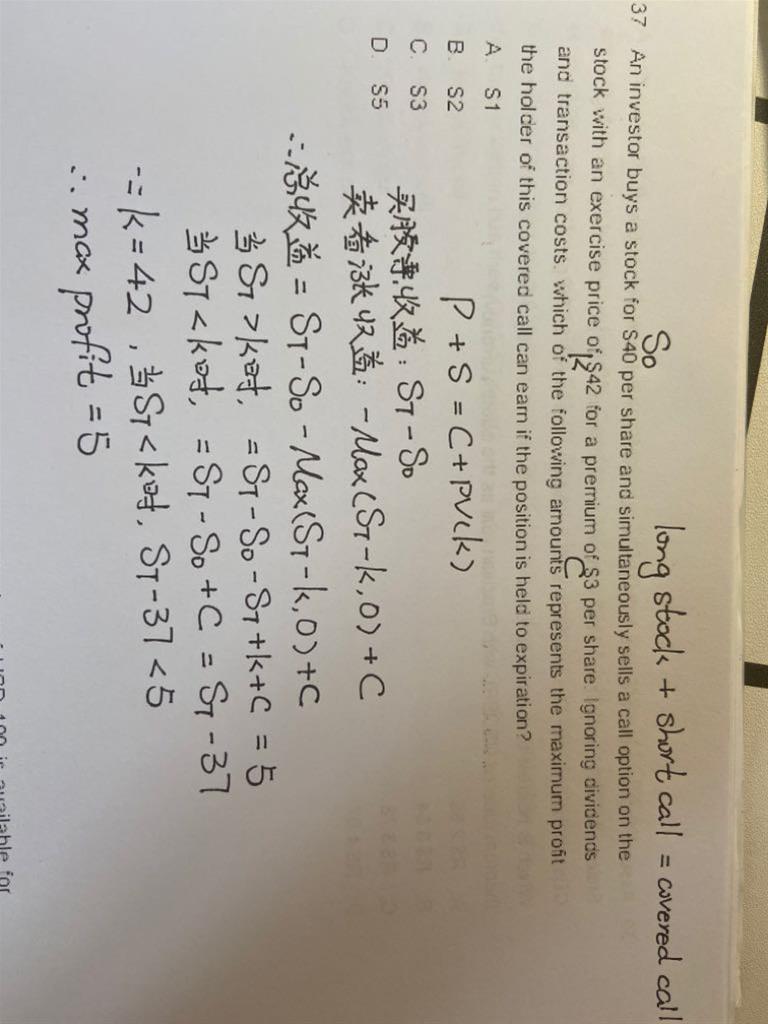 So
long stock + short call = covered call
37 An investor buys a stock for $40 per share and simultaneously sells a call option on the
stock with an exercise price of $42 for a premium of $3 per share. Ignoring dividends
K
C
and transaction costs. which of the following amounts represents the maximum profit
the holder of this covered call can earn if the position is held to expiration?
A. $1
B. $2
C. $3
D. $5
P + S = C + PV(k)
买股票收益: ST - So
卖看涨收益: -Max(ST-k,0)+C
∴总收益 = ST-So-Max(ST-k,0)+C
当ST>k时, =ST-So-ST+k+C =5
当ST<k时, =ST-So+C = ST-37
∵k=42, 当ST<k时, ST-37<5
∴ max profit =5